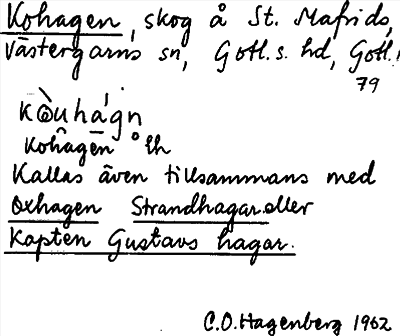 Kohagen, skog å St. Mafrids,
Västergarns sn, Gotl. s. hd, Gotl.
79
kòuhá̱gn
Kohagen °lh
Kallas även tillsammans med
Oxhagen Strandhagar eller
Kapten Gustavs hagar.
C.O. Hagenberg 1962